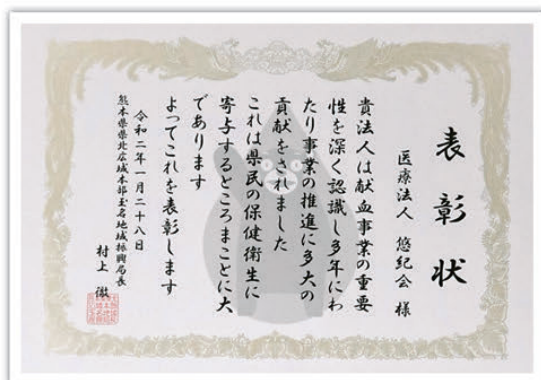 表彰状
医療法人 悠紀会 様
貴法人は献血事業の重要
性を深く認識し多年にわ
たり事業の推進に多大の
貢献をされました
これは県民の保健衛生に
寄与するところまことに大
であります
よってこれを表彰します
令和二年一月二十八日
熊本県県北広域本部玉名地域振興局長
村上 徹